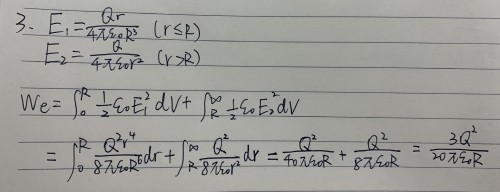 3. E₁ = Qr/4πε₀R³ (r≤R)
E₂ = Q/4πε₀r² (r>R)
We = ∫₀ᴿ ½ε₀E₁²dV + ∫_R^∞ ½ε₀E₂²dV
= ∫₀ᴿ Q²r⁴/8πε₀R⁶ dr + ∫_R^∞ Q²/8πε₀r² dr = Q²/40πε₀R + Q²/8πε₀R = 3Q²/20πε₀R